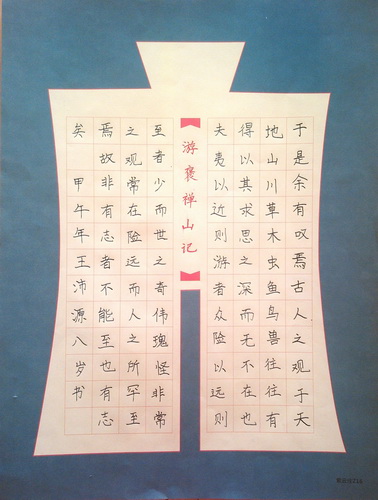 于是余有叹焉古人之观于天
地山川草木虫鱼鸟兽往往有
得以其求思之深而无不在也
夫夷以近则游者众险以远则
游褒禅山记
至者少而世之奇伟瑰怪非常
之观常在险远而人之所罕至
焉故非有志者不能至也有志
矣 甲午年王沛源八岁书